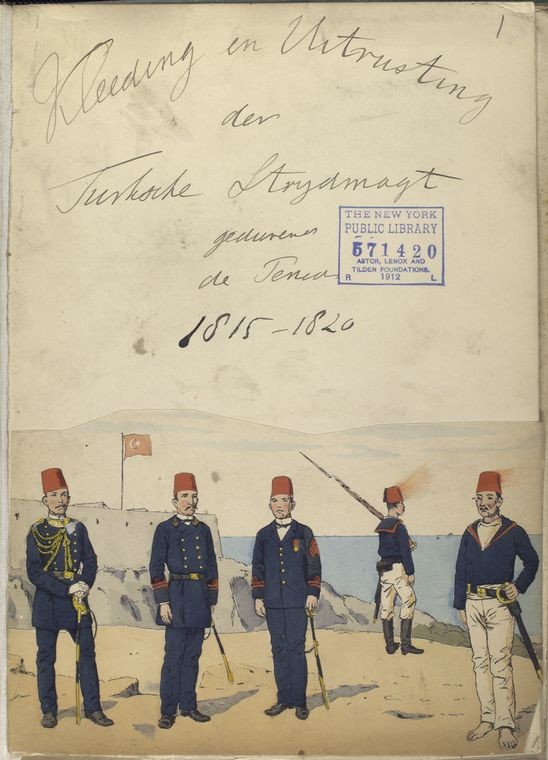 1
Kleeding en Uitrusting
der
Turksche Strydmagt
gedurende
de Jeren
1815-1820
THE NEW YORK
PUBLIC LIBRARY
571420
ASTOR, LENOX AND
TILDEN FOUNDATIONS.
R 1912 L